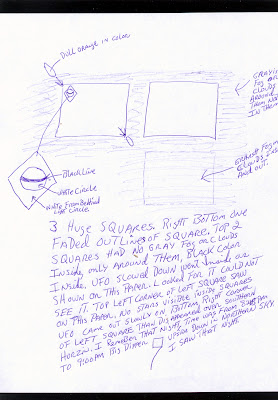 Dull orange in color
Grayish
Fog or
Clouds
Around
Them Not
In Them
Black Line
White Circle
White From Behind
Circle
Grayish Fog or
Clouds
And out.
3 Huge Squares. Right Bottom one
Faded outlines of square, Top 2
Squares Had No Gray Fog or Clouds
Inside, only Around Them, Black Color
Inside. UFO Slowed Down went inside as
Shown on This Paper. Looked For it Could Not
See it. Top Left Corner of Left Square Saw
on This Paper. No Stars Visible inside Squares
UFO Came out Slowly on Bottom Right Corner
of Left Square Than Disappeared over Southern
Horizn. I Remember That Night, Time was From 8:45pm
to 9:00pm Big Dipper upside Down in Northern Sky.
I Saw That Night.